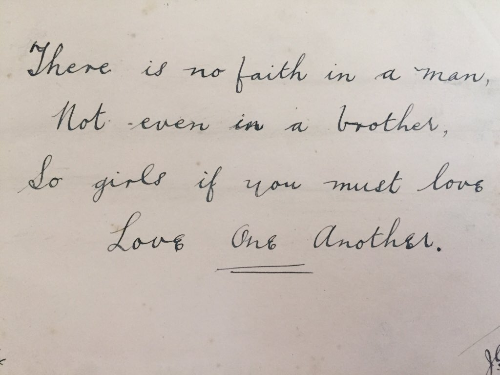 There is no faith in a man,
Not even in a brother,
So girls if you must love
Love One Another.